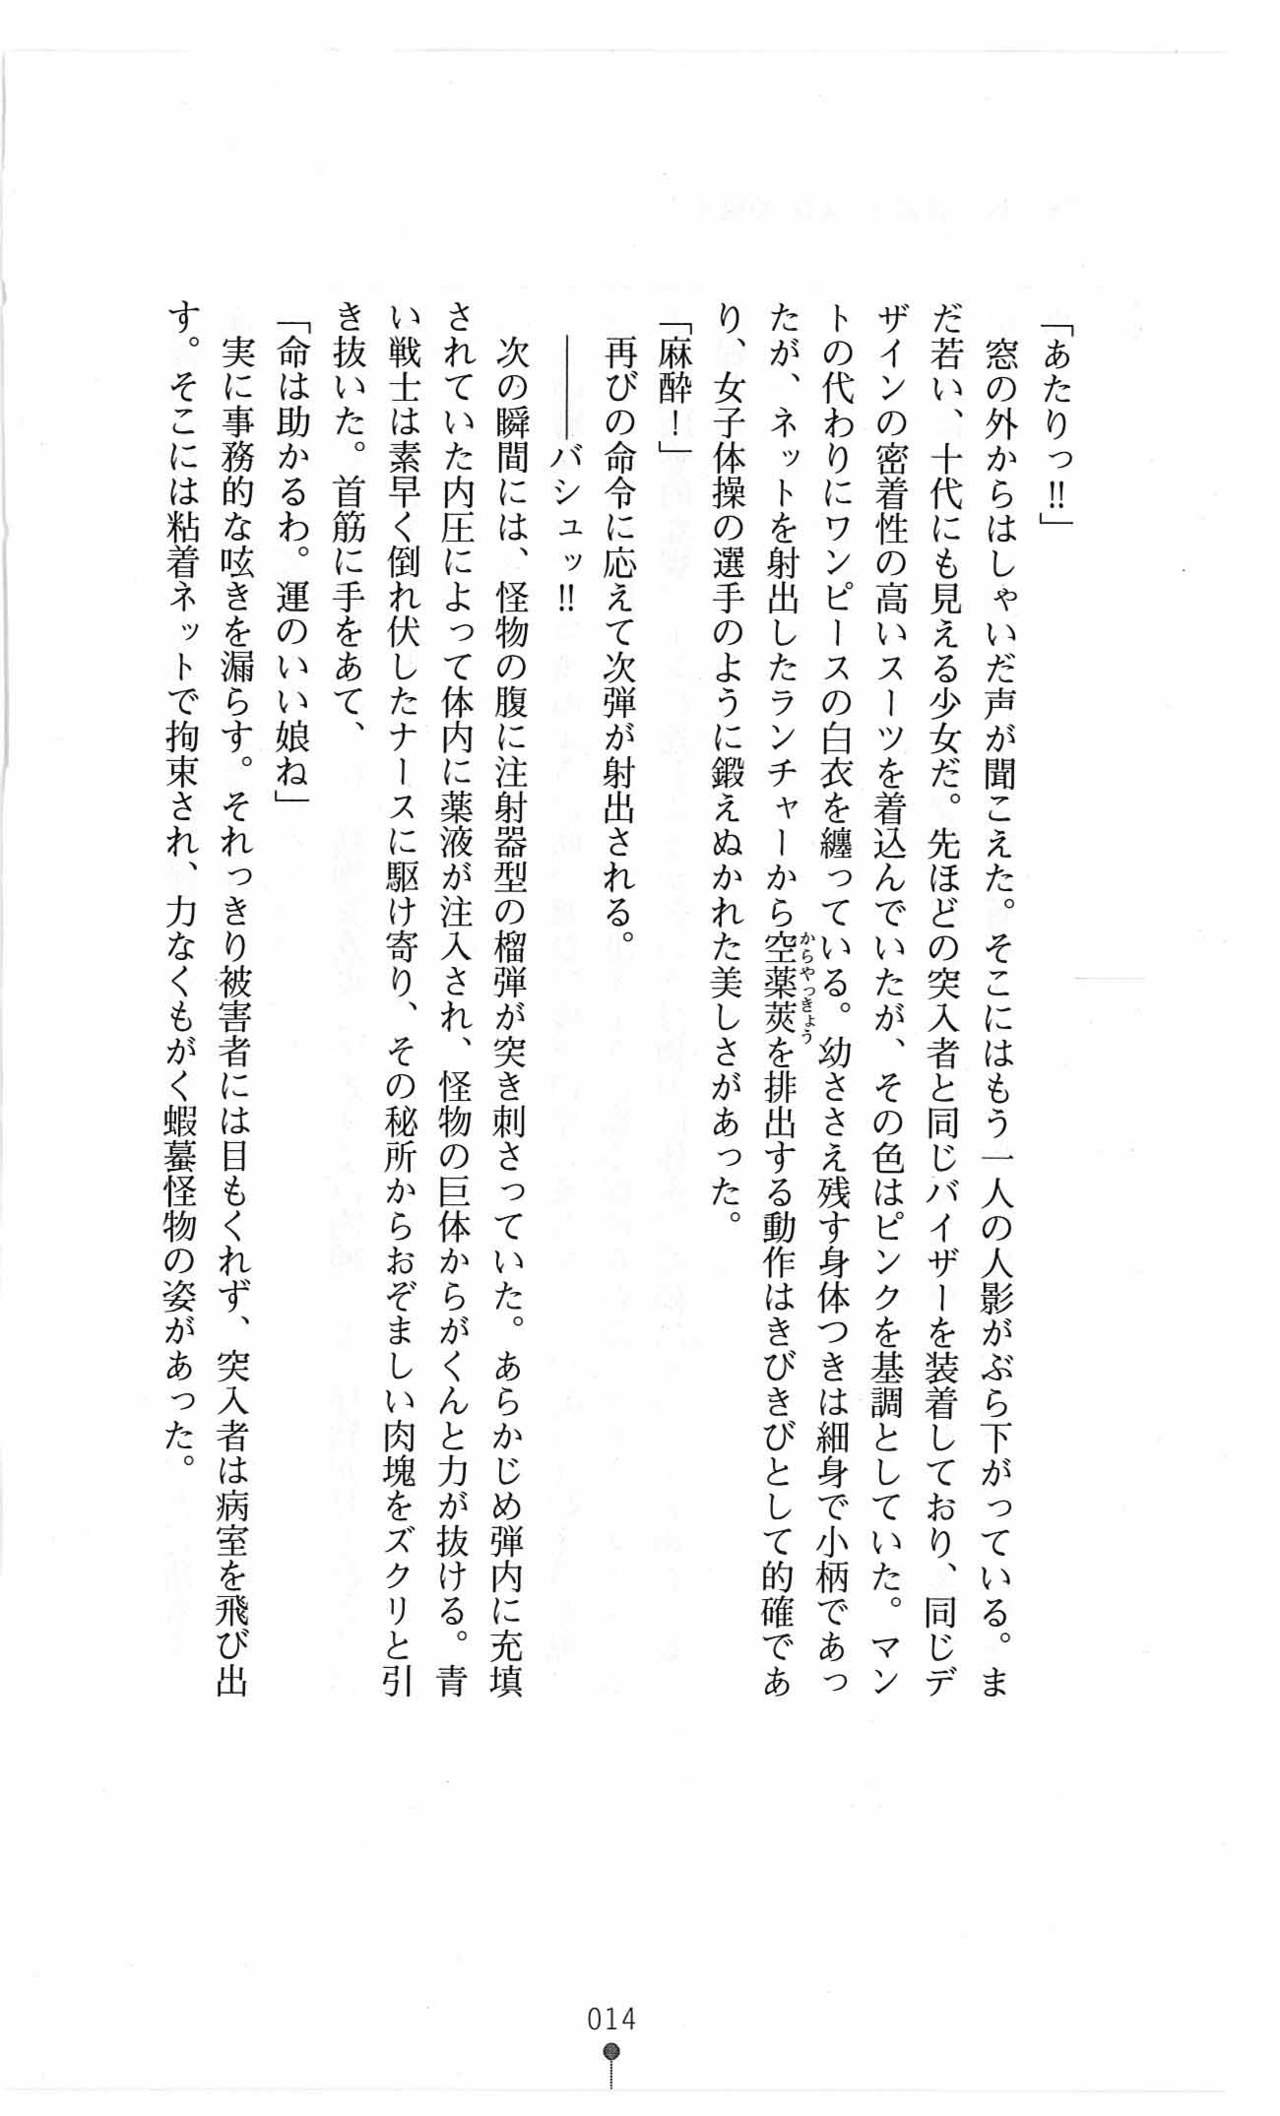 「あたりっ!!」
　窓の外からはしゃいだ声が聞こえた。そこにはもう一人の人影がぶら下がっている。ま
だ若い、十代にも見える少女だ。先ほどの突入者と同じバイザーを装着しており、同じデ
ザインの密着性の高いスーツを着込んでいたが、その色はピンクを基調としていた。マン
トの代わりにワンピースの白衣を纏っている。幼ささえ残す身体つきは細身で小柄であっ
たが、ネットを射出したランチャーから空薬莢からやっきょうを排出する動作はきびきびとして的確であ
り、女子体操の選手のように鍛えぬかれた美しさがあった。
「麻酔！」
　再びの命令に応えて次弾が射出される。
　―――バシュッ!!
　次の瞬間には、怪物の腹に注射器型の榴弾が突き刺さっていた。あらかじめ弾内に充填
されていた内圧によって体内に薬液が注入され、怪物の巨体からがくんと力が抜ける。青
い戦士は素早く倒れ伏したナースに駆け寄り、その秘所からおぞましい肉塊をズクリと引
き抜いた。首筋に手をあて、
「命は助かるわ。運のいい娘ね」
　実に事務的な呟きを漏らす。それっきり被害者には目もくれず、突入者は病室を飛び出
す。そこには粘着ネットで拘束され、力なくもがく蝦蟇怪物の姿があった。
014